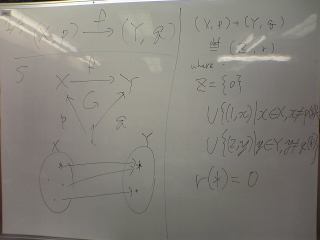 (X, p) —f→ (Y, q)
X —f→ Y
p q
X Y
(X, p) + (Y, q)
def
= (Z, r)
where
Z = {0}
∪ {(1,x) | x∈X, x≠p(*)
∪ {(2,y) | y∈Y, y≠q(*)
r(*) = 0